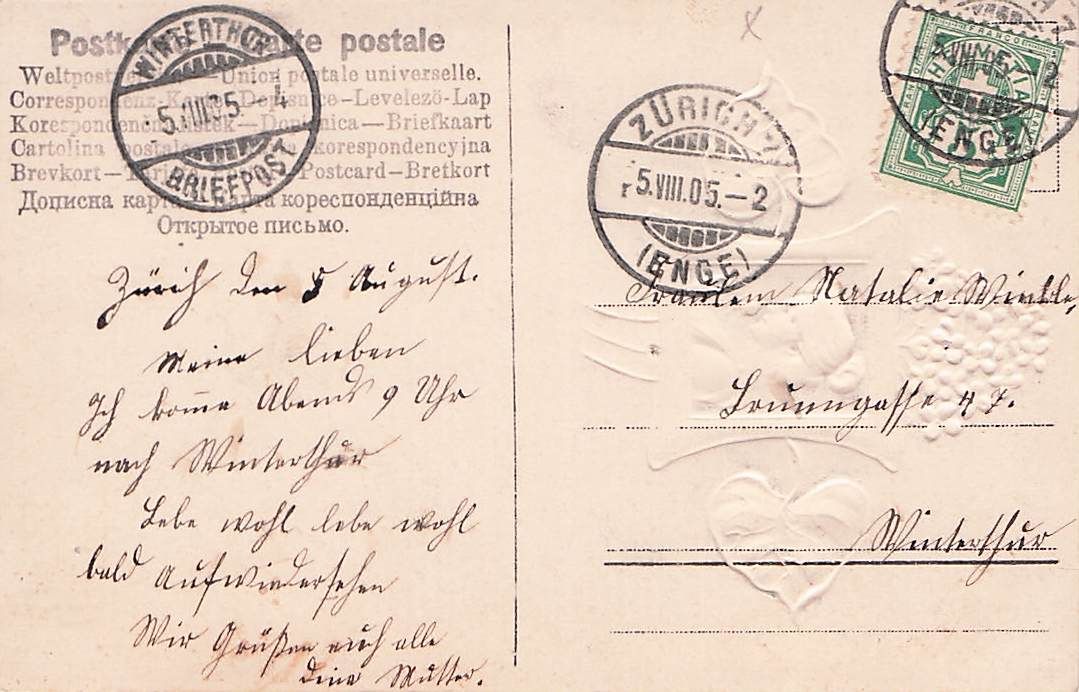 Postk    rte postale
Weltpost    Union postale universelle.
Correspondenz-Karte—Dopisnice—Levelezö-Lap
Korespondenčni listek—Dopisnica—Briefkaart
Cartolina postale    korespondencyjna
Brevkort—    Postcard—Bretkort
Дописна карта    рта кореспонденційна
Открытое письмо.
WINTERTHUR
5.VIII.05.–4
BRIEFPOST
ZÜRICH
5.VIII.05.–2
(ENGE)
FRANCO
HELVETIA
5
VIII
2
(ENGE)
Zürich den 5 August.
Meine lieben
Ich komme Abends 9 Uhr
nach Winterthur
Lebe wohl lebe wohl
bald Aufwiedersehen
Wir Grüßen euch alle
deine Mutter.
Fräulein Natalie
Brunngasse 47.
Winterthur